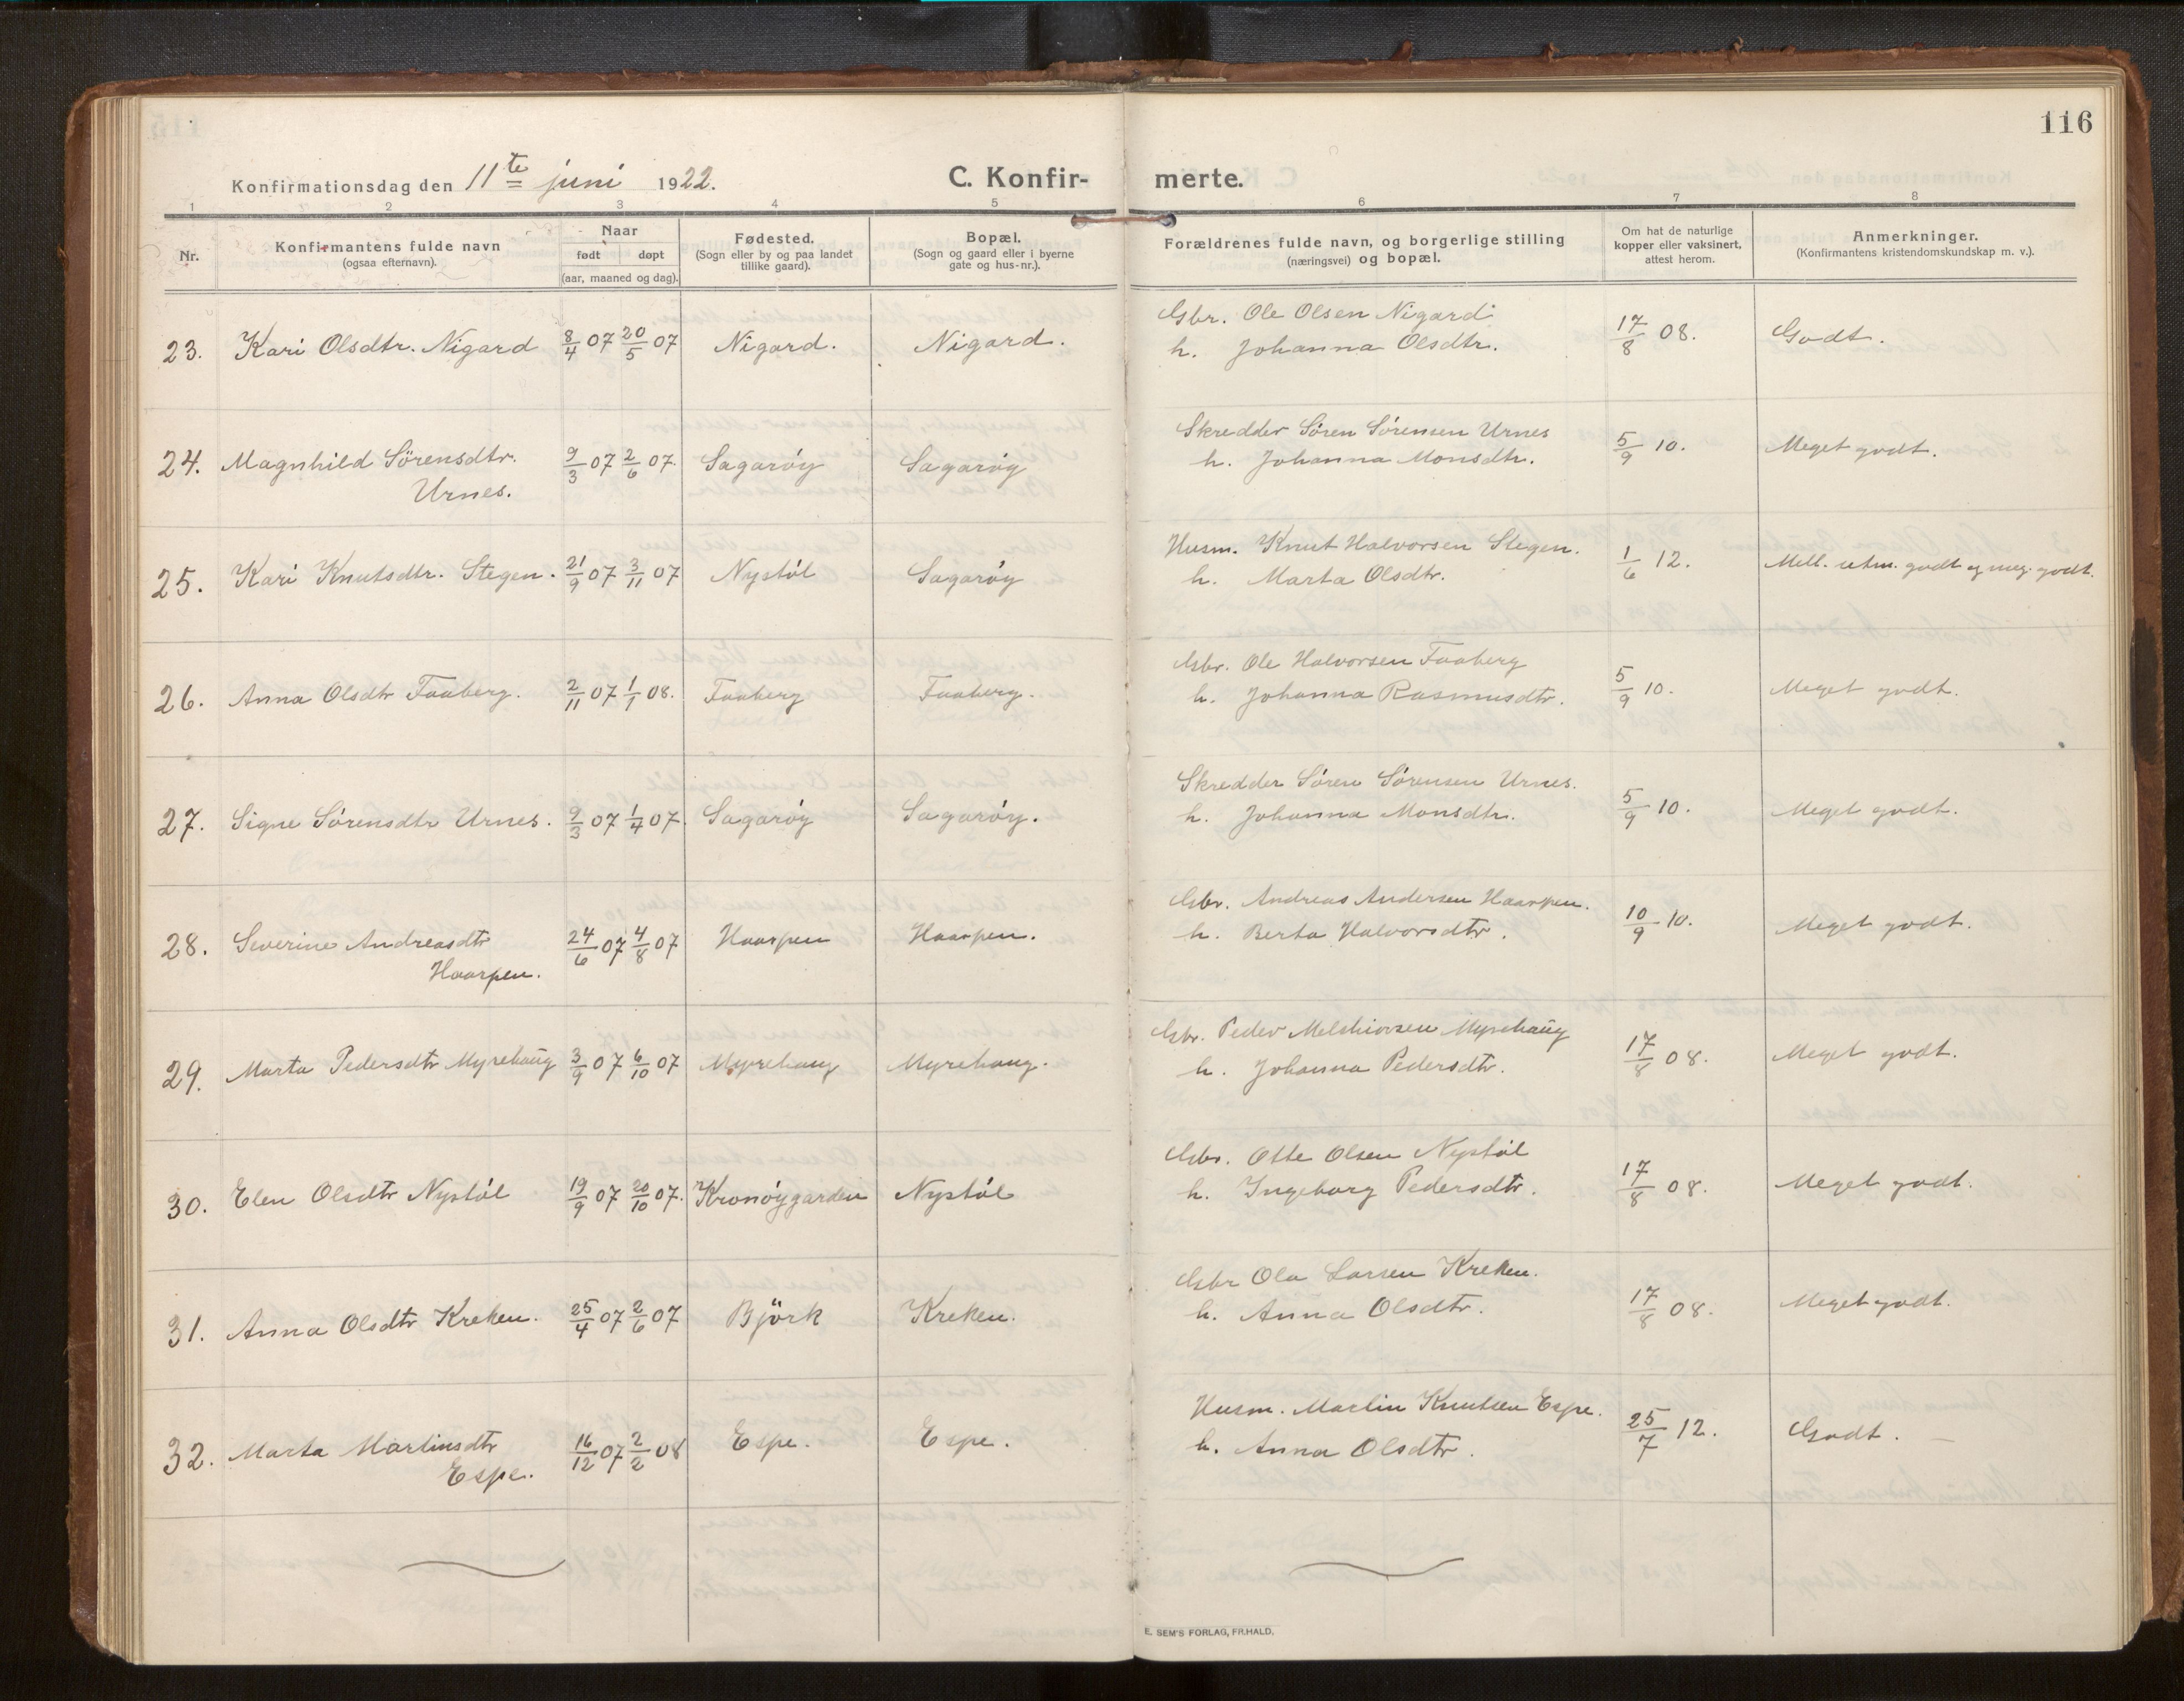 116
Konfirmationsdag den 11te juni 1922.
C. Konfir-
merte.
1 2 3 4 5 6 7 8
Nr.
Konfirmantens fulde navn
(ogsaa efternavn).
Naar
født døpt
(aar, maaned og dag).
Fødested.
(Sogn eller by og paa landet
tillike gaard).
Bopæl.
(Sogn og gaard eller i byerne
gate og hus-nr.).
Forældrenes fulde navn, og borgerlige stilling
(næringsvei) og bopæl.
Om hat de naturlige
kopper eller vaksinert,
attest herom.
Anmerkninger.
(Konfirmantens kristendomskundskap m. v.).
23. Kari Olsdtr. Nigard 8/4 07 20/5 07 Nigard. Nigard.
Gbr. Ole Olsen Nigard
h. Johanna Olsdtr. 17/8 08. Godt.
24. Magnhild Sörensdtr.
Urnes. 9/3 07 2/6 07. Sagaröy Sagaröy
Skredder Sören Sörensen Urnes
h. Johanna Monsdtr. 5/9 10. Meget godt.
25. Kari Knutsdtr. Stegen. 21/9 07 3/11 07 Nystöl Sagaröy
Husm. Knut Halvorsen Stegen.
h. Marta Olsdtr. 1/6 12. Mell. utm. godt og meg. godt.
26. Anna Olsdtr Faaberg. 2/11 07 1/1 08. Faaberg Faaberg.
Gbr. Ole Halvorsen Faaberg
h. Johanna Rasmusdtr. 5/9 10. Meget godt.
27. Signe Sörensdtr Urnes. 9/3 07 1/4 07. Sagaröy Sagaröy.
Skredder Sören Sörensen Urnes.
h. Johanna Monsdtr. 5/9 10. Meget godt.
28. Severine Andreasdtr
Haarpen. 24/6 07 4/8 07 Haarpen Haarpen.
Gbr. Andreas Andersen Haarpen.
h. Berta Halvorsdtr. 10/9 10. Meget godt.
29. Marta Pedersdtr Myrehaug 3/9 07 6/10 07 Myrehaug Myrehaug.
Gbr. Peder Melchiorsen Myrehaug
h. Johanna Pedersdtr. 17/8 08. Meget godt.
30. Elen Olsdtr Nystöl 19/9 07 20/10 07. Kronöygarden Nystöl
Gbr. Otte Olsen Nystöl
h. Ingeborg Pedersdtr. 17/8 08. Meget godt.
31. Anna Olsdtr Kreken. 25/4 07 2/6 07 Björk Kreken.
Gbr Ola Larsen Kreken.
h. Anna Olsdtr. 17/8 08. Meget godt.
32. Marta Martinsdtr
Espe. 16/12 07 2/2 08 Espe. Espe.
Husm. Martin Knutsen Espe.
h. Anna Olsdtr. 25/7 12. Godt. —
E. SEM'S FORLAG, FR.HALD.